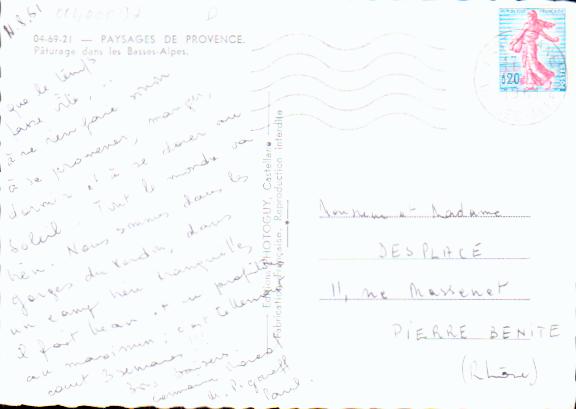 04-69-21 — PAYSAGES DE PROVENCE.
Pâturage dans les Basses-Alpes.
RÉPUBLIQUE FRANÇAISE
0,20
que le temps
passe vite, !!
à se promener, manger,
dormir et à se dorer au
soleil. Tout le monde va
bien. Nous sommes dans les
gorges du Verdon, dans
un camp bien tranquille,
il fait beau et on profite
au maximum; c'est tellement
court 3 semaines !!!
Bons baisers
Paul.
Editions PHOTOGUY, Castellane
Fabrication Française. Reproduction interdite
Monsieur et Madame
DESPLACE
11, rue Massenet
PIERRE BENITE
(Rhône)